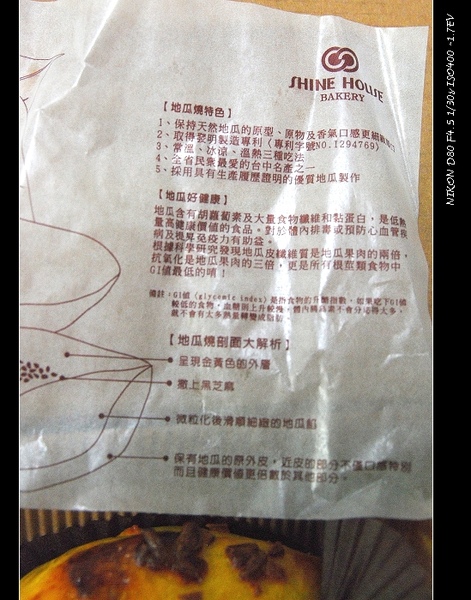 SHINE HOUSE
BAKERY
【地瓜燒特色】
1、保持天然地瓜的原型、原物及香氣口感更細緻
2、取得發明製造專利（專利字號NO.I294769）
3、常溫、冰涼、溫熱三種吃法
4、全省民眾最愛的台中名產之一
5、採用具有生產履歷證明的優質地瓜製作
【地瓜好健康】
地瓜含有胡蘿蔔素及大量食物纖維和黏蛋白，是低熱
量高健康價值的食品。對於體內排毒或預防心血管疾
病及提昇免疫力有助益。
根據科學研究發現地瓜皮纖維質是地瓜果肉的兩倍，
抗氧化是地瓜果肉的三倍，更是所有根莖類食物中
GI值最低的唷！
備註：GI值（glycemic index）是指食物的升醣指數，如果吃下GI值
較低的食物，血糖則上升較慢，體內胰島素不會分泌得太多，
就不會有太多熱量轉變成脂肪。
【地瓜燒剖面大解析】
呈現金黃色的外層
撒上黑芝麻
微粒化後滑順細緻的地瓜餡
保有地瓜的原外皮，近皮的部分不僅口感特別
而且健康價值更倍數於其他部分。
NIKON D80 F4.5 1/30s ISO400 -1.7EV